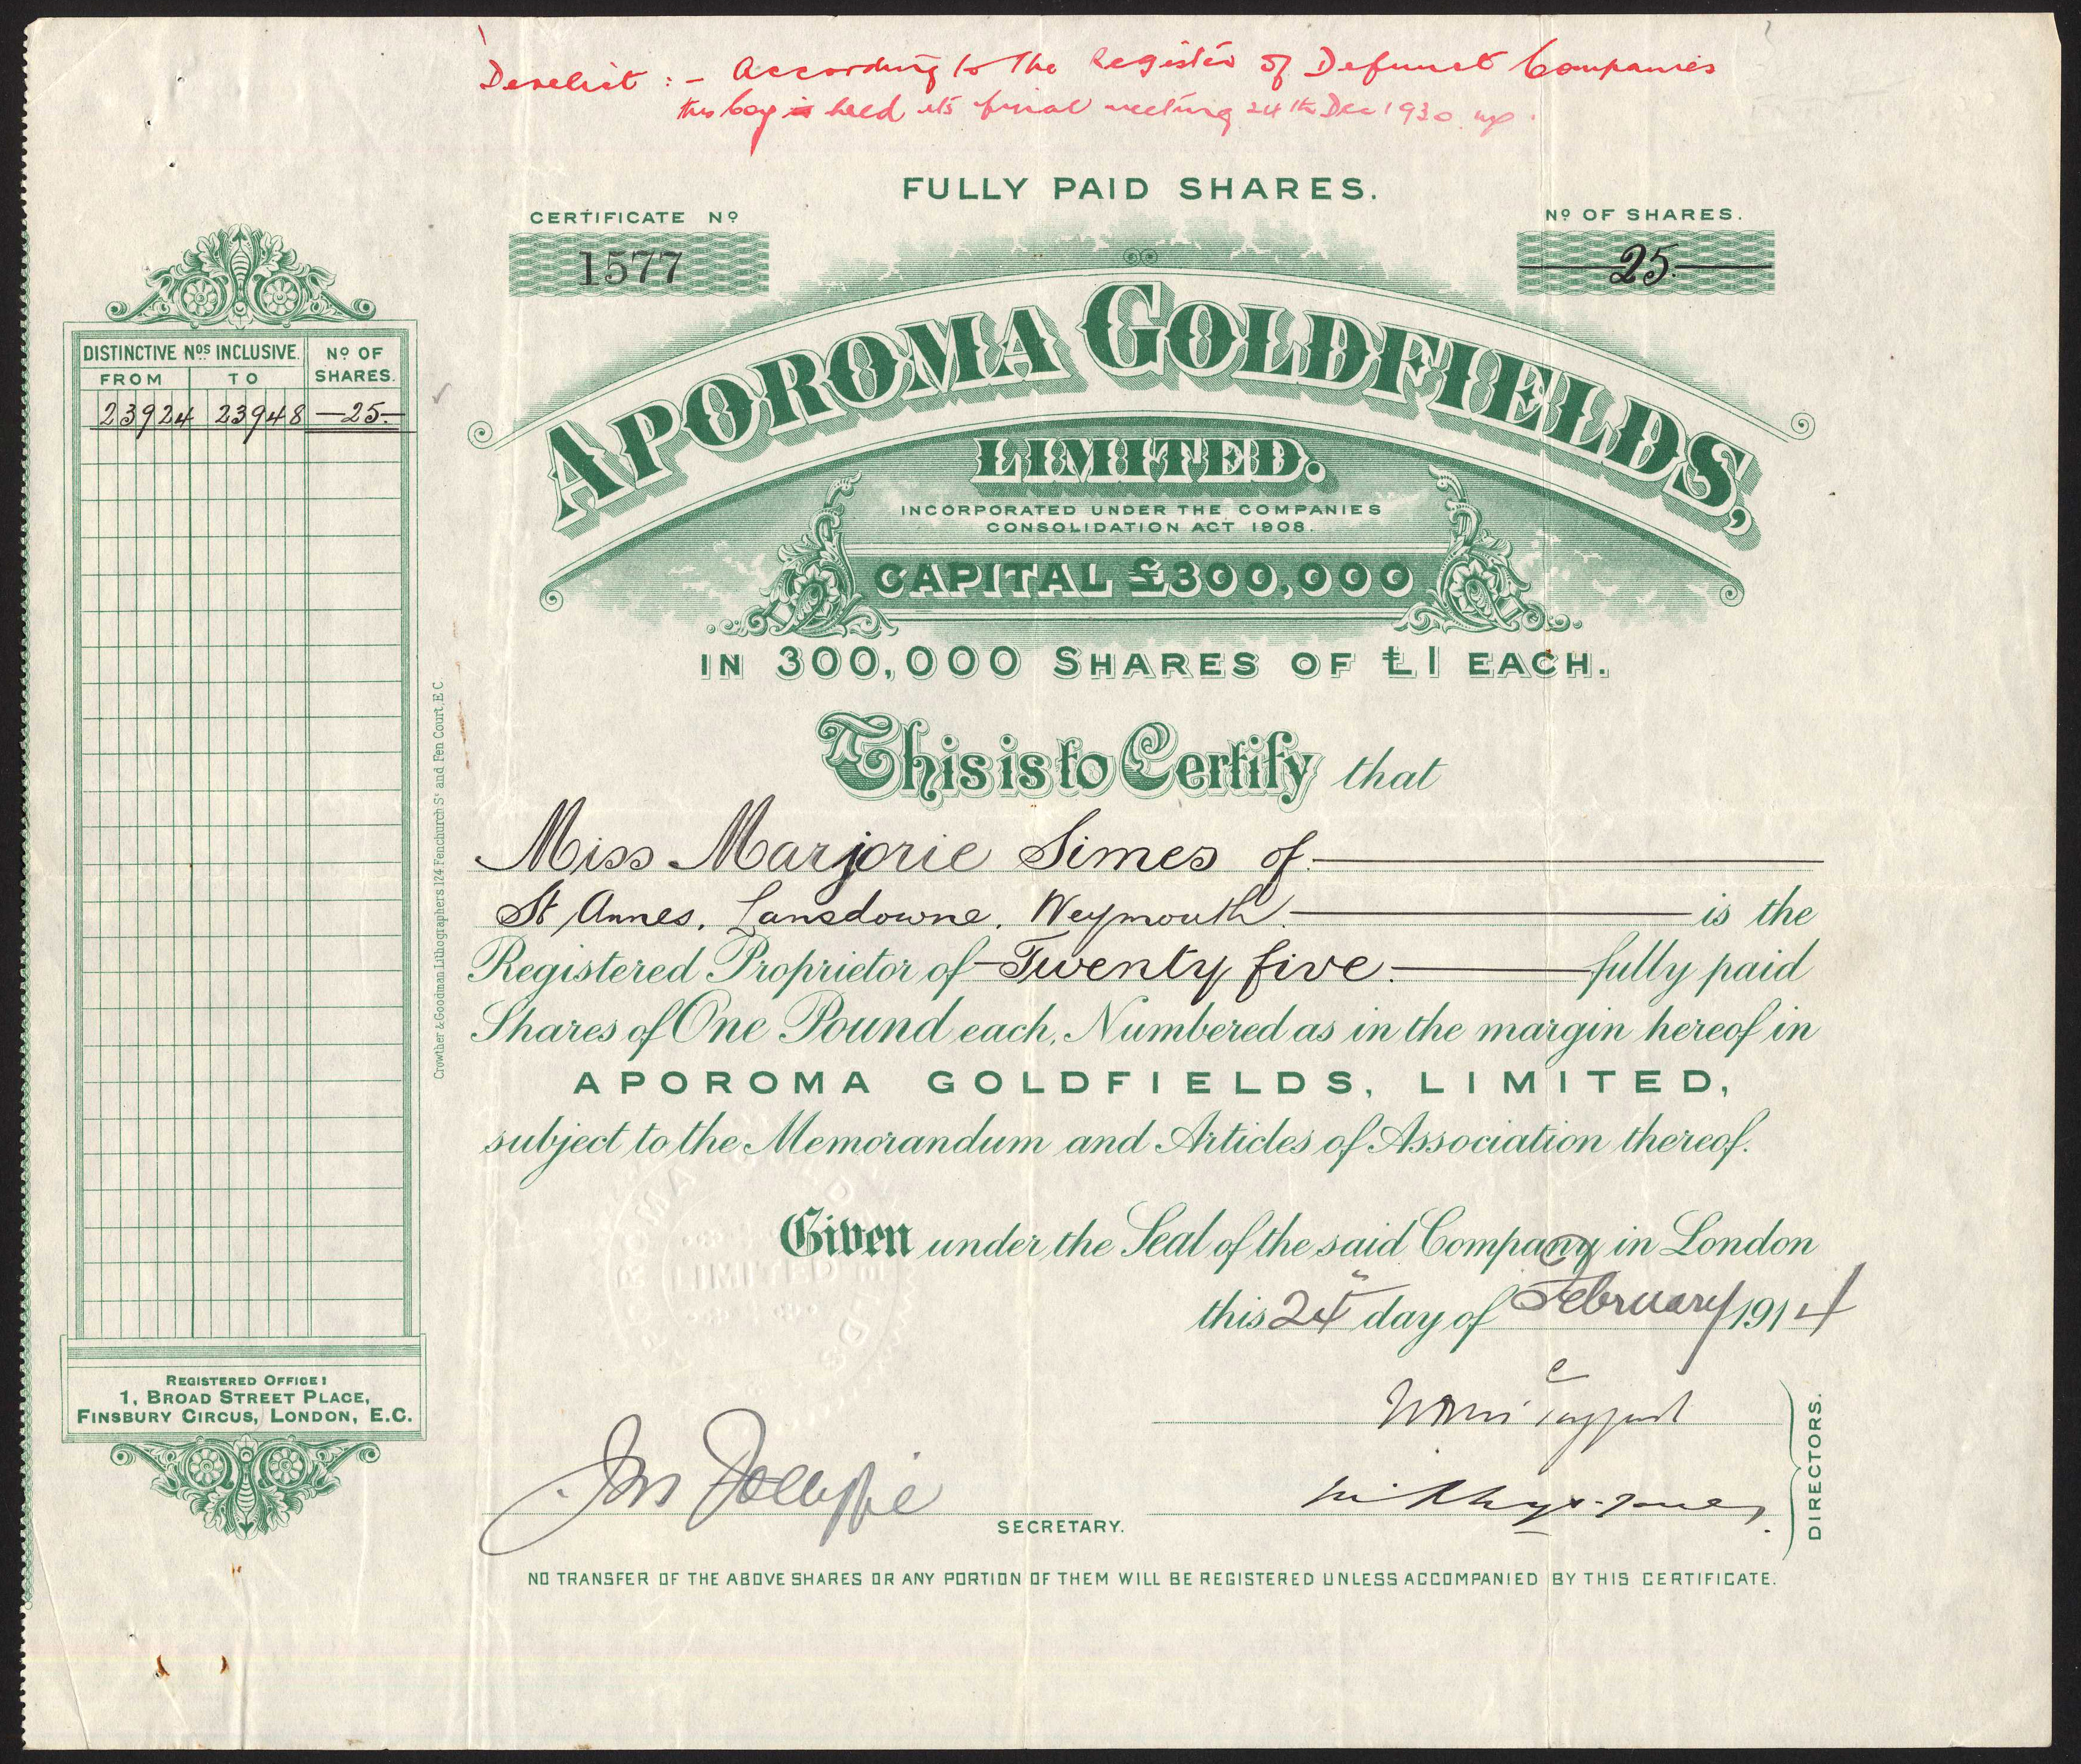 Derelict :- According to the Register of Defunct Companies
this Coy held its final meeting 24th Dec 1930
FULLY PAID SHARES.
CERTIFICATE Nº
1577
Nº OF SHARES.
25
APOROMA GOLDFIELDS,
LIMITED.
INCORPORATED UNDER THE COMPANIES
CONSOLIDATION ACT 1908.
CAPITAL £300,000
IN 300,000 SHARES OF £1 EACH.
DISTINCTIVE Nos INCLUSIVE. Nº OF SHARES.
FROM TO
23924 23948 25
Crowther & Goodman Lithographers 124 Fenchurch St and Pen Court, E.C.
This is to Certify that
Miss Marjorie Simes of
St Annes, Lansdowne, Weymouth is the
Registered Proprietor of Twenty five fully paid
Shares of One Pound each, Numbered as in the margin hereof in
APOROMA GOLDFIELDS, LIMITED,
subject to the Memorandum and Articles of Association thereof.
Given under the Seal of the said Company in London
this 24th day of February 1914
LIMITED
REGISTERED OFFICE:
1, BROAD STREET PLACE,
FINSBURY CIRCUS, LONDON, E.C.
SECRETARY.
DIRECTORS.
NO TRANSFER OF THE ABOVE SHARES OR ANY PORTION OF THEM WILL BE REGISTERED UNLESS ACCOMPANIED BY THIS CERTIFICATE.